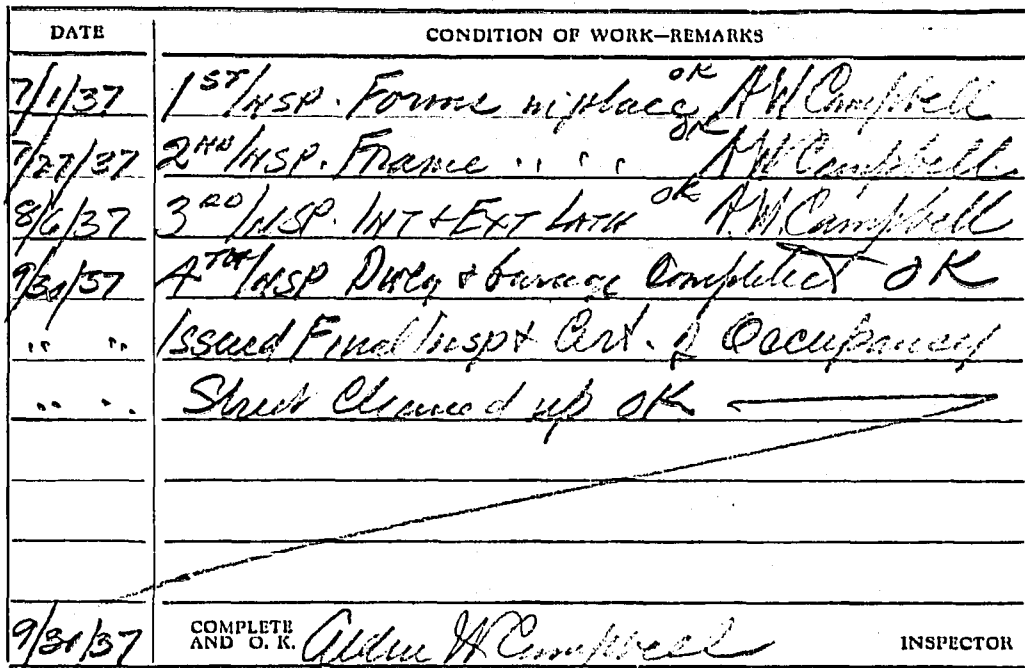 DATE CONDITION OF WORK—REMARKS
7/1/37 1ST INSP. Forms in place OK A.W. Campbell
7/27/37 2ND INSP. Frame " " OK A.W. Campbell
8/6/37 3RD INSP. INT + EXT LATH OK A.W. Campbell
9/30/37 4TH INSP Dwlg + Garage Completed OK
" " Issued Final Insp + Cert. of Occupancy
" " Street Cleaned up OK
9/30/37 COMPLETE AND O. K. W Campbell INSPECTOR